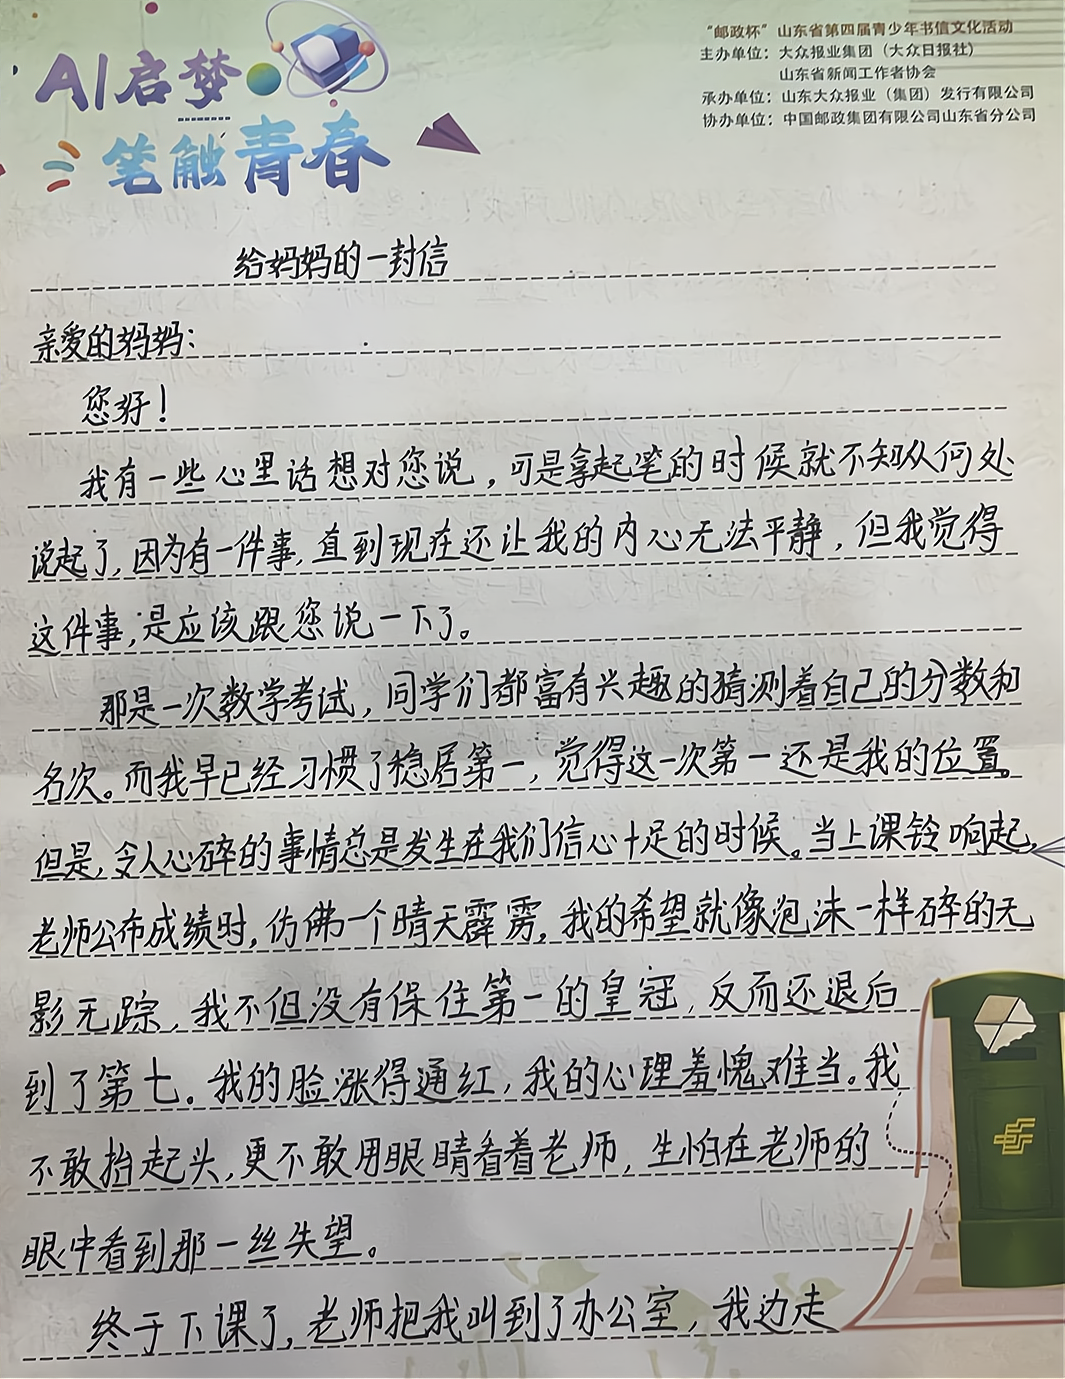 AI启梦
笔触青春
“邮政杯”山东省第四届青少年书信文化活动
主办单位：大众报业集团（大众日报社）
山东省新闻工作者协会
承办单位：山东大众报业（集团）发行有限公司
协办单位：中国邮政集团有限公司山东省分公司
给妈妈的一封信
亲爱的妈妈：
您好！
我有一些心里话想对您说，可是拿起笔的时候就不知从何处
说起了，因为有一件事，直到现在还让我的内心无法平静，但我觉得
这件事，是应该跟您说一下了。
那是一次数学考试，同学们都富有兴趣的猜测着自己的分数和
名次。而我早已经习惯了稳居第一，觉得这一次第一还是我的位置。
但是，令人心碎的事情总是发生在我们信心十足的时候。当上课铃响起，
老师公布成绩时，仿佛一个晴天霹雳，我的希望就像泡沫一样碎的无
影无踪，我不但没有保住第一的皇冠，反而还退后
到了第七。我的脸涨得通红，我的心理羞愧难当。我
不敢抬起头，更不敢用眼睛看着老师，生怕在老师的
眼中看到那一丝失望。
终于下课了，老师把我叫到了办公室，我边走